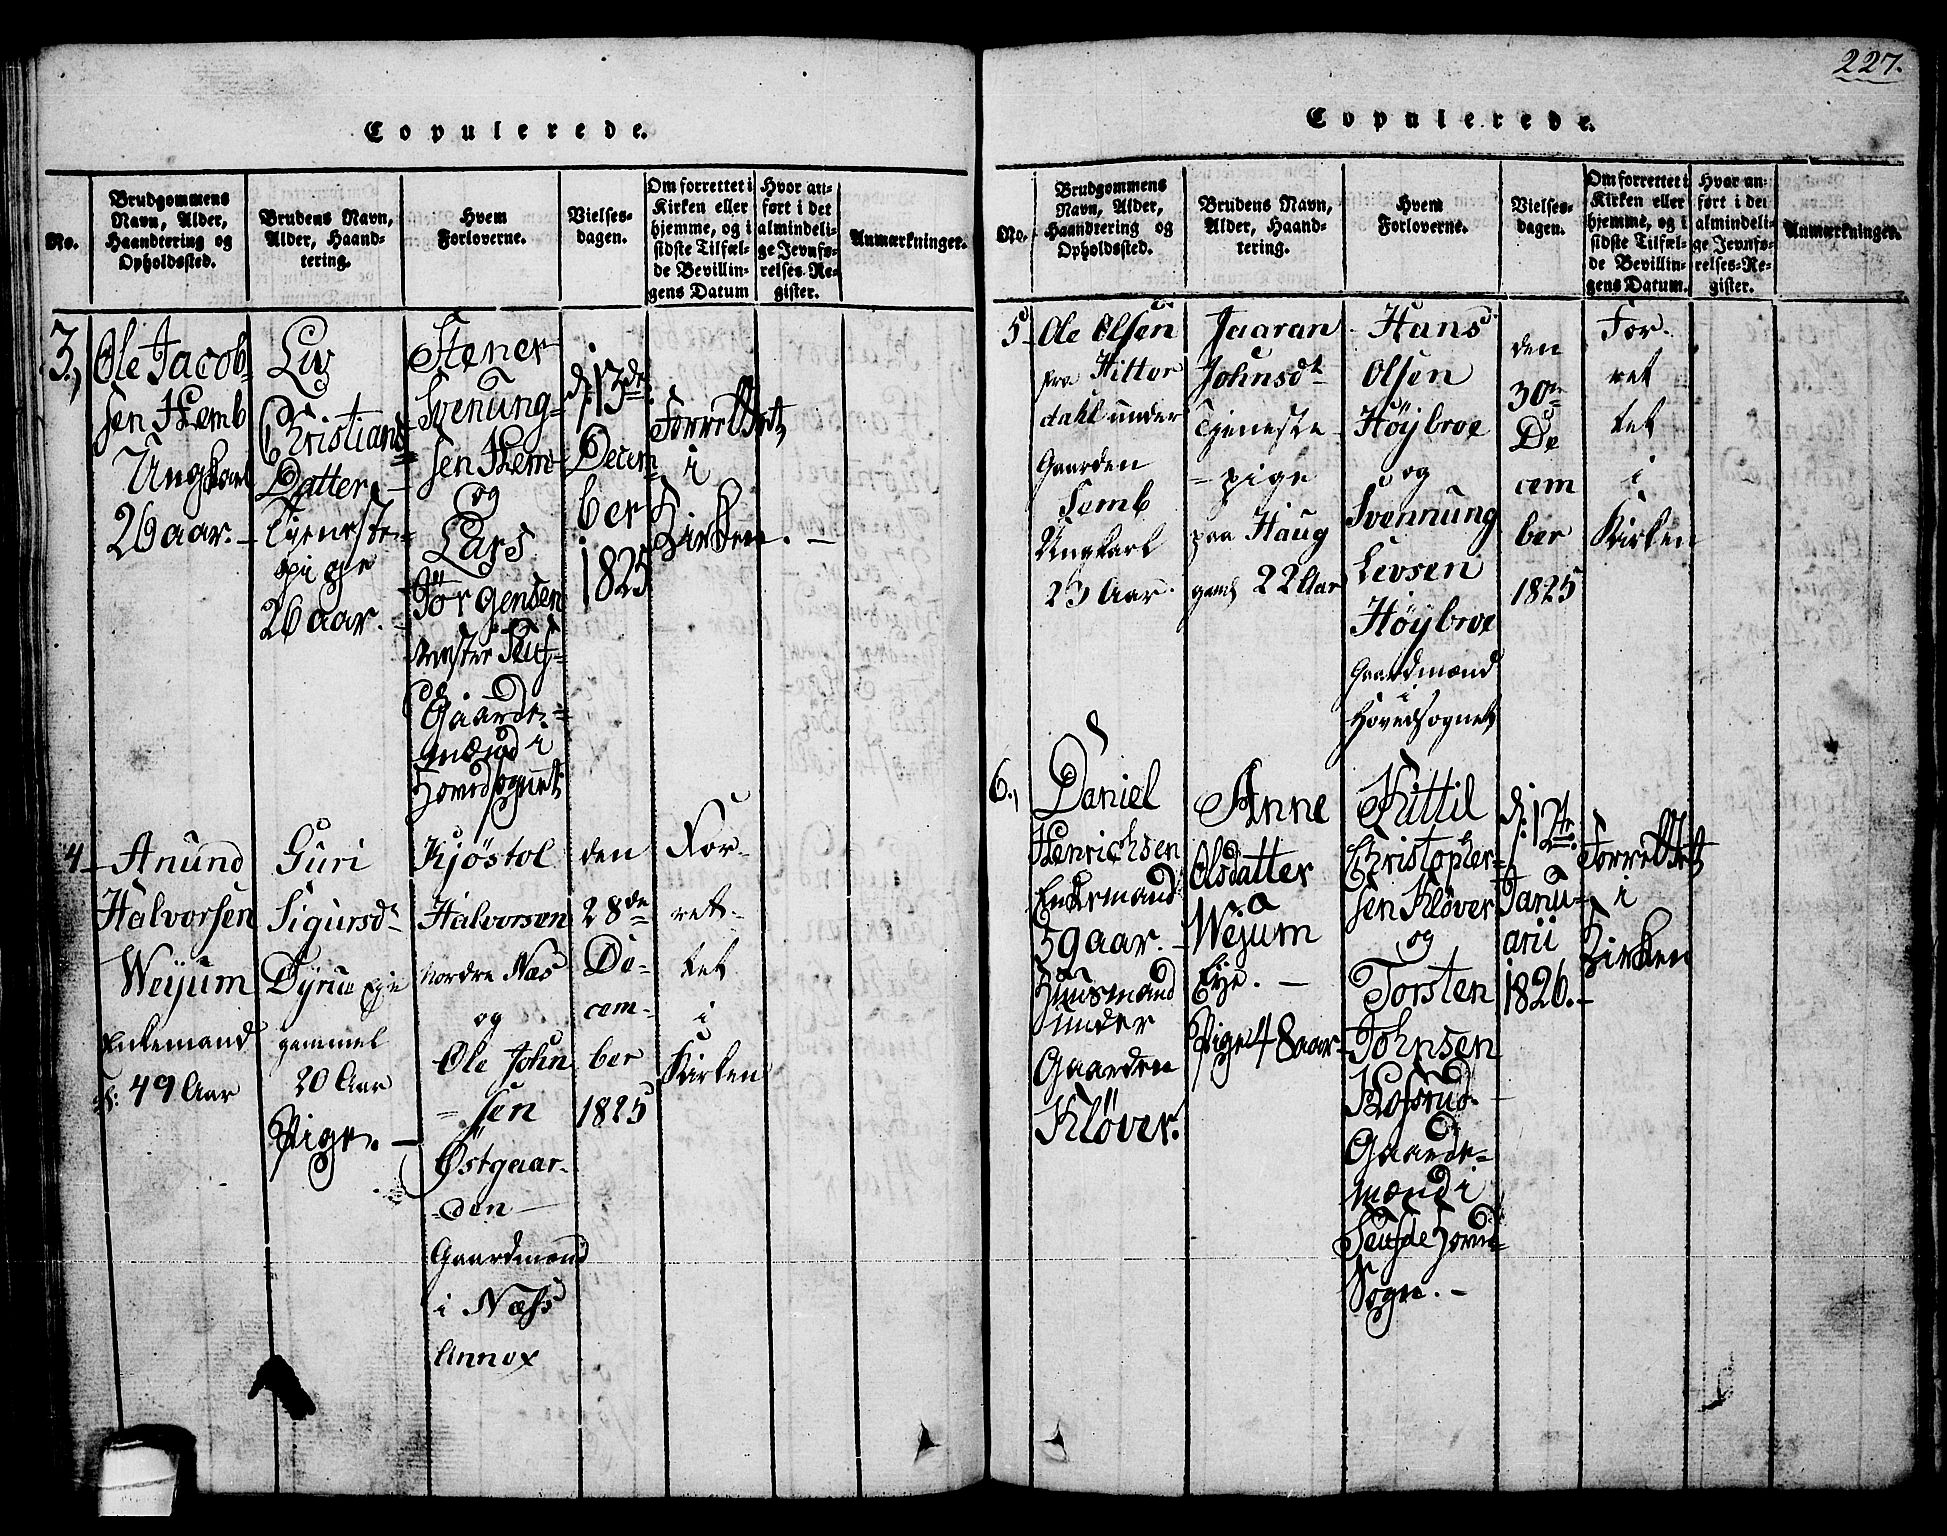 Copulerede.
No.
Brudgommens
Navn, Alder,
Haandtering og
Opholdssted.
Brudens Navn,
Alder, Haand-
tering.
Hvem
Forloverne.
Vielses-
dagen.
Om forrettet i
Kirken eller
hjemme, og i
sidste Tilfæl-
de Bevillin-
gens Datum
Hvor an-
ført i det
almindeli-
ge Jevnfø-
relses-Re-
gister.
Anmærkninger.
3.,
Ole Jacob-
sen Hemb
Ungkarl
26 aar. -
Liv
Christians
Datter -
Tjeneste-
pige
26 aar. -
Stener
Svenung-
sen Hem
og
Lars
Jörgensen
Gaarde-
mænd i
Hovedsognet
d. 13de
Decem
ber
1825
Forrettet
i
Kirken. -
4
Anund
Halvorsen
Weijum
Enkemand
49 Aar
Guri
Sigursdt
gammel
20 Aar
Pige. -
Kjöstol
Halvorsen
nordre Næs
og
Ole John
= sen
Østgaar-
=den
Gaardmænd
i Næss
Annex
den
28de
De-
cem-
ber
1825
For-
ret-
tet
i
Kirken
227.
Copulerede.
No.
Brudgommens
Navn, Alder,
Haandtering og
Opholdssted.
Brudens Navn,
Alder, Haand-
tering.
Hvem
Forloverne.
Vielses-
dagen.
Om forrettet i
Kirken eller
hjemme, og i
sidste Tilfæl-
de Bevillin-
gens Datum.
Hvor an-
ført i det
almindeli-
ge Jevnfø-
relses-Re-
gister.
Anmærkninger.
5
Ole Olsen
fra Hitter
dahl under
Gaarden
Semb
Ungkarl
23 Aar.
Jaaran
Johnsdt
Tjeneste-
- pige
paa Haug
gaml 22 Aar
Hans
Olsen
Höybroe
og
Svennung
Levsen
Höybroe
Gaardmænd
i
Hovedsognet
den
30te
De
cem
ber
1825
For-
ret
tet
i
Kirken
6.,
Daniel
Henrichsen
Enkemand
59 aar. -
Huusmand
under
Gaarden
Kløver.
Anne
Olsdatter
Wejum
Eje. -
Pige 48 aar
Kittil
Christopher-
sen Kløver
og
Torsten
Johnsen
Gaarde-
mænd i
Sogn. -
d. 12te
Janu-
arii
1826. -
Forrettet
i
Kirken